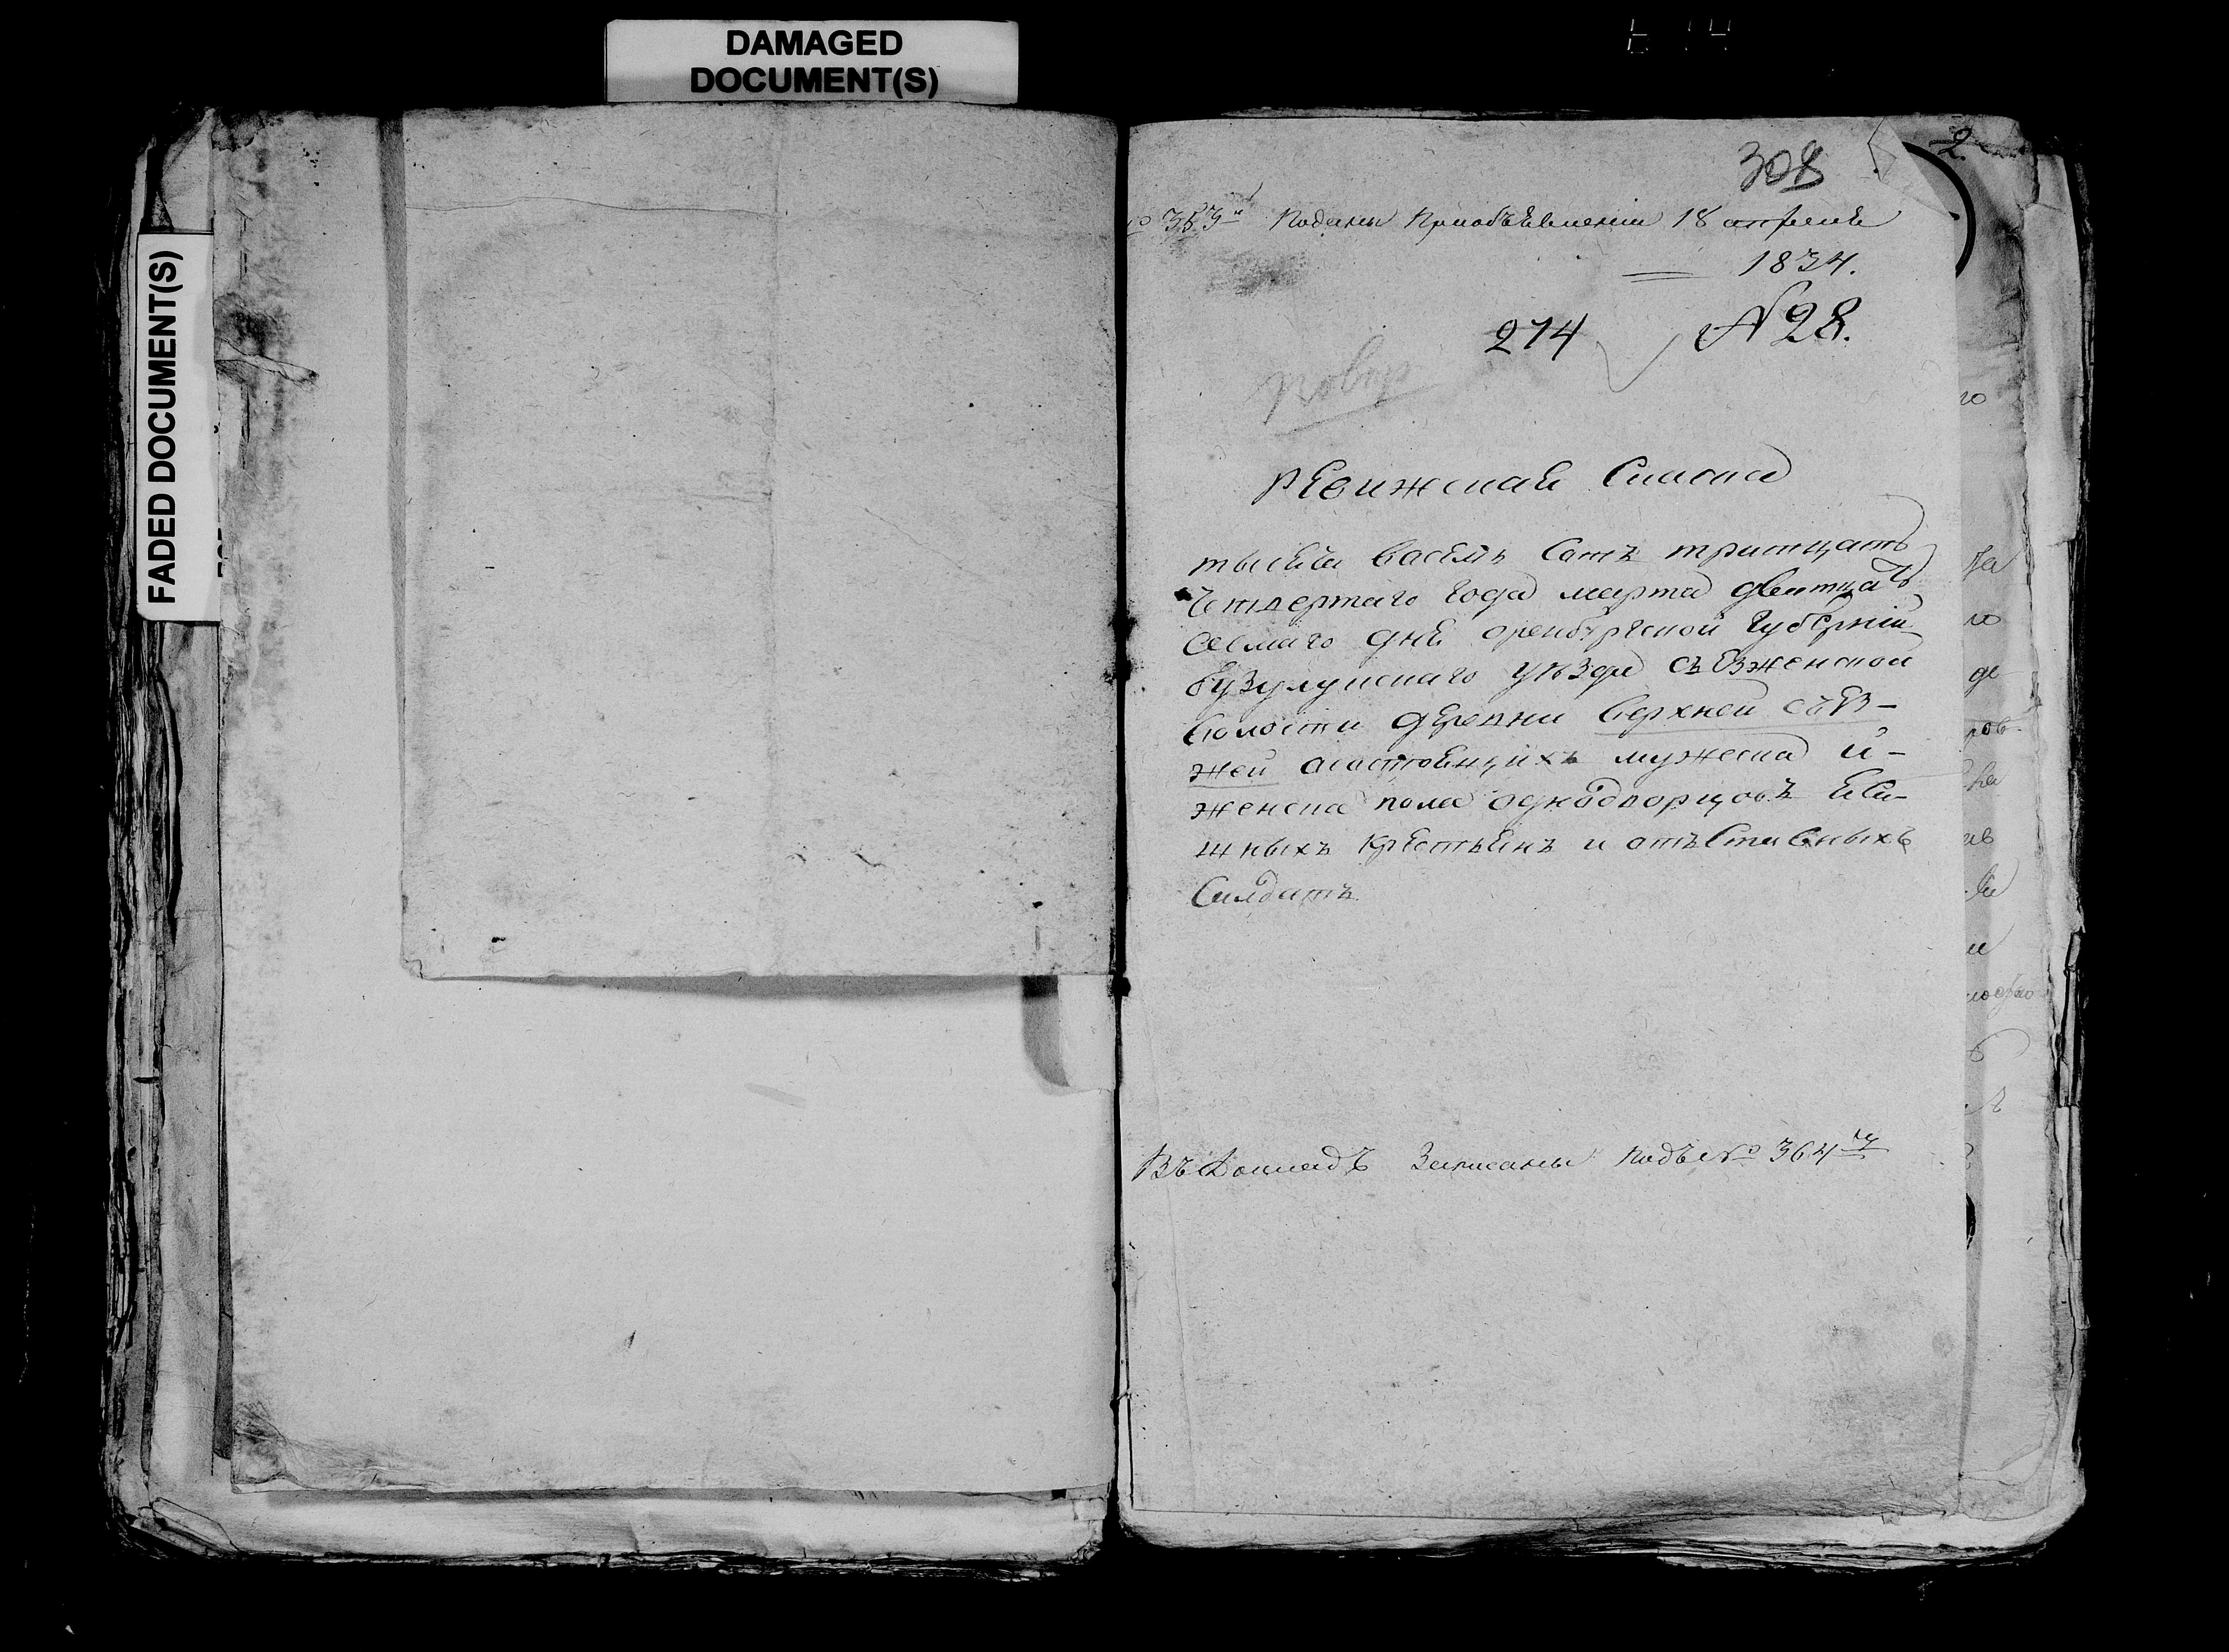 DAMAGED
DOCUMENT(S)
FADED DOCUMENT(S)
2
308
№ 353й Поданы Приобъѣвленіи 18 апрѣлѣ
1834.
274 № 28.
рѣвижскаѣ Скаска
тысѣча васѣмъ Сотъ тритцать
Четвертаго года марта двѣтцать
Сѣдмаго днѣ оренбургской Губернии
бузулуцкаго уѣзда съѣзженской
волости дѣревни верхней съѣз-
жей асостоѣщихъ мужеска и-
женска пола однодворцовъ ѣса-
шныхъ крѣстьѣнъ и отъставныхъ
Салдатъ
Въ Докладъ Записаны Подъ № 364й